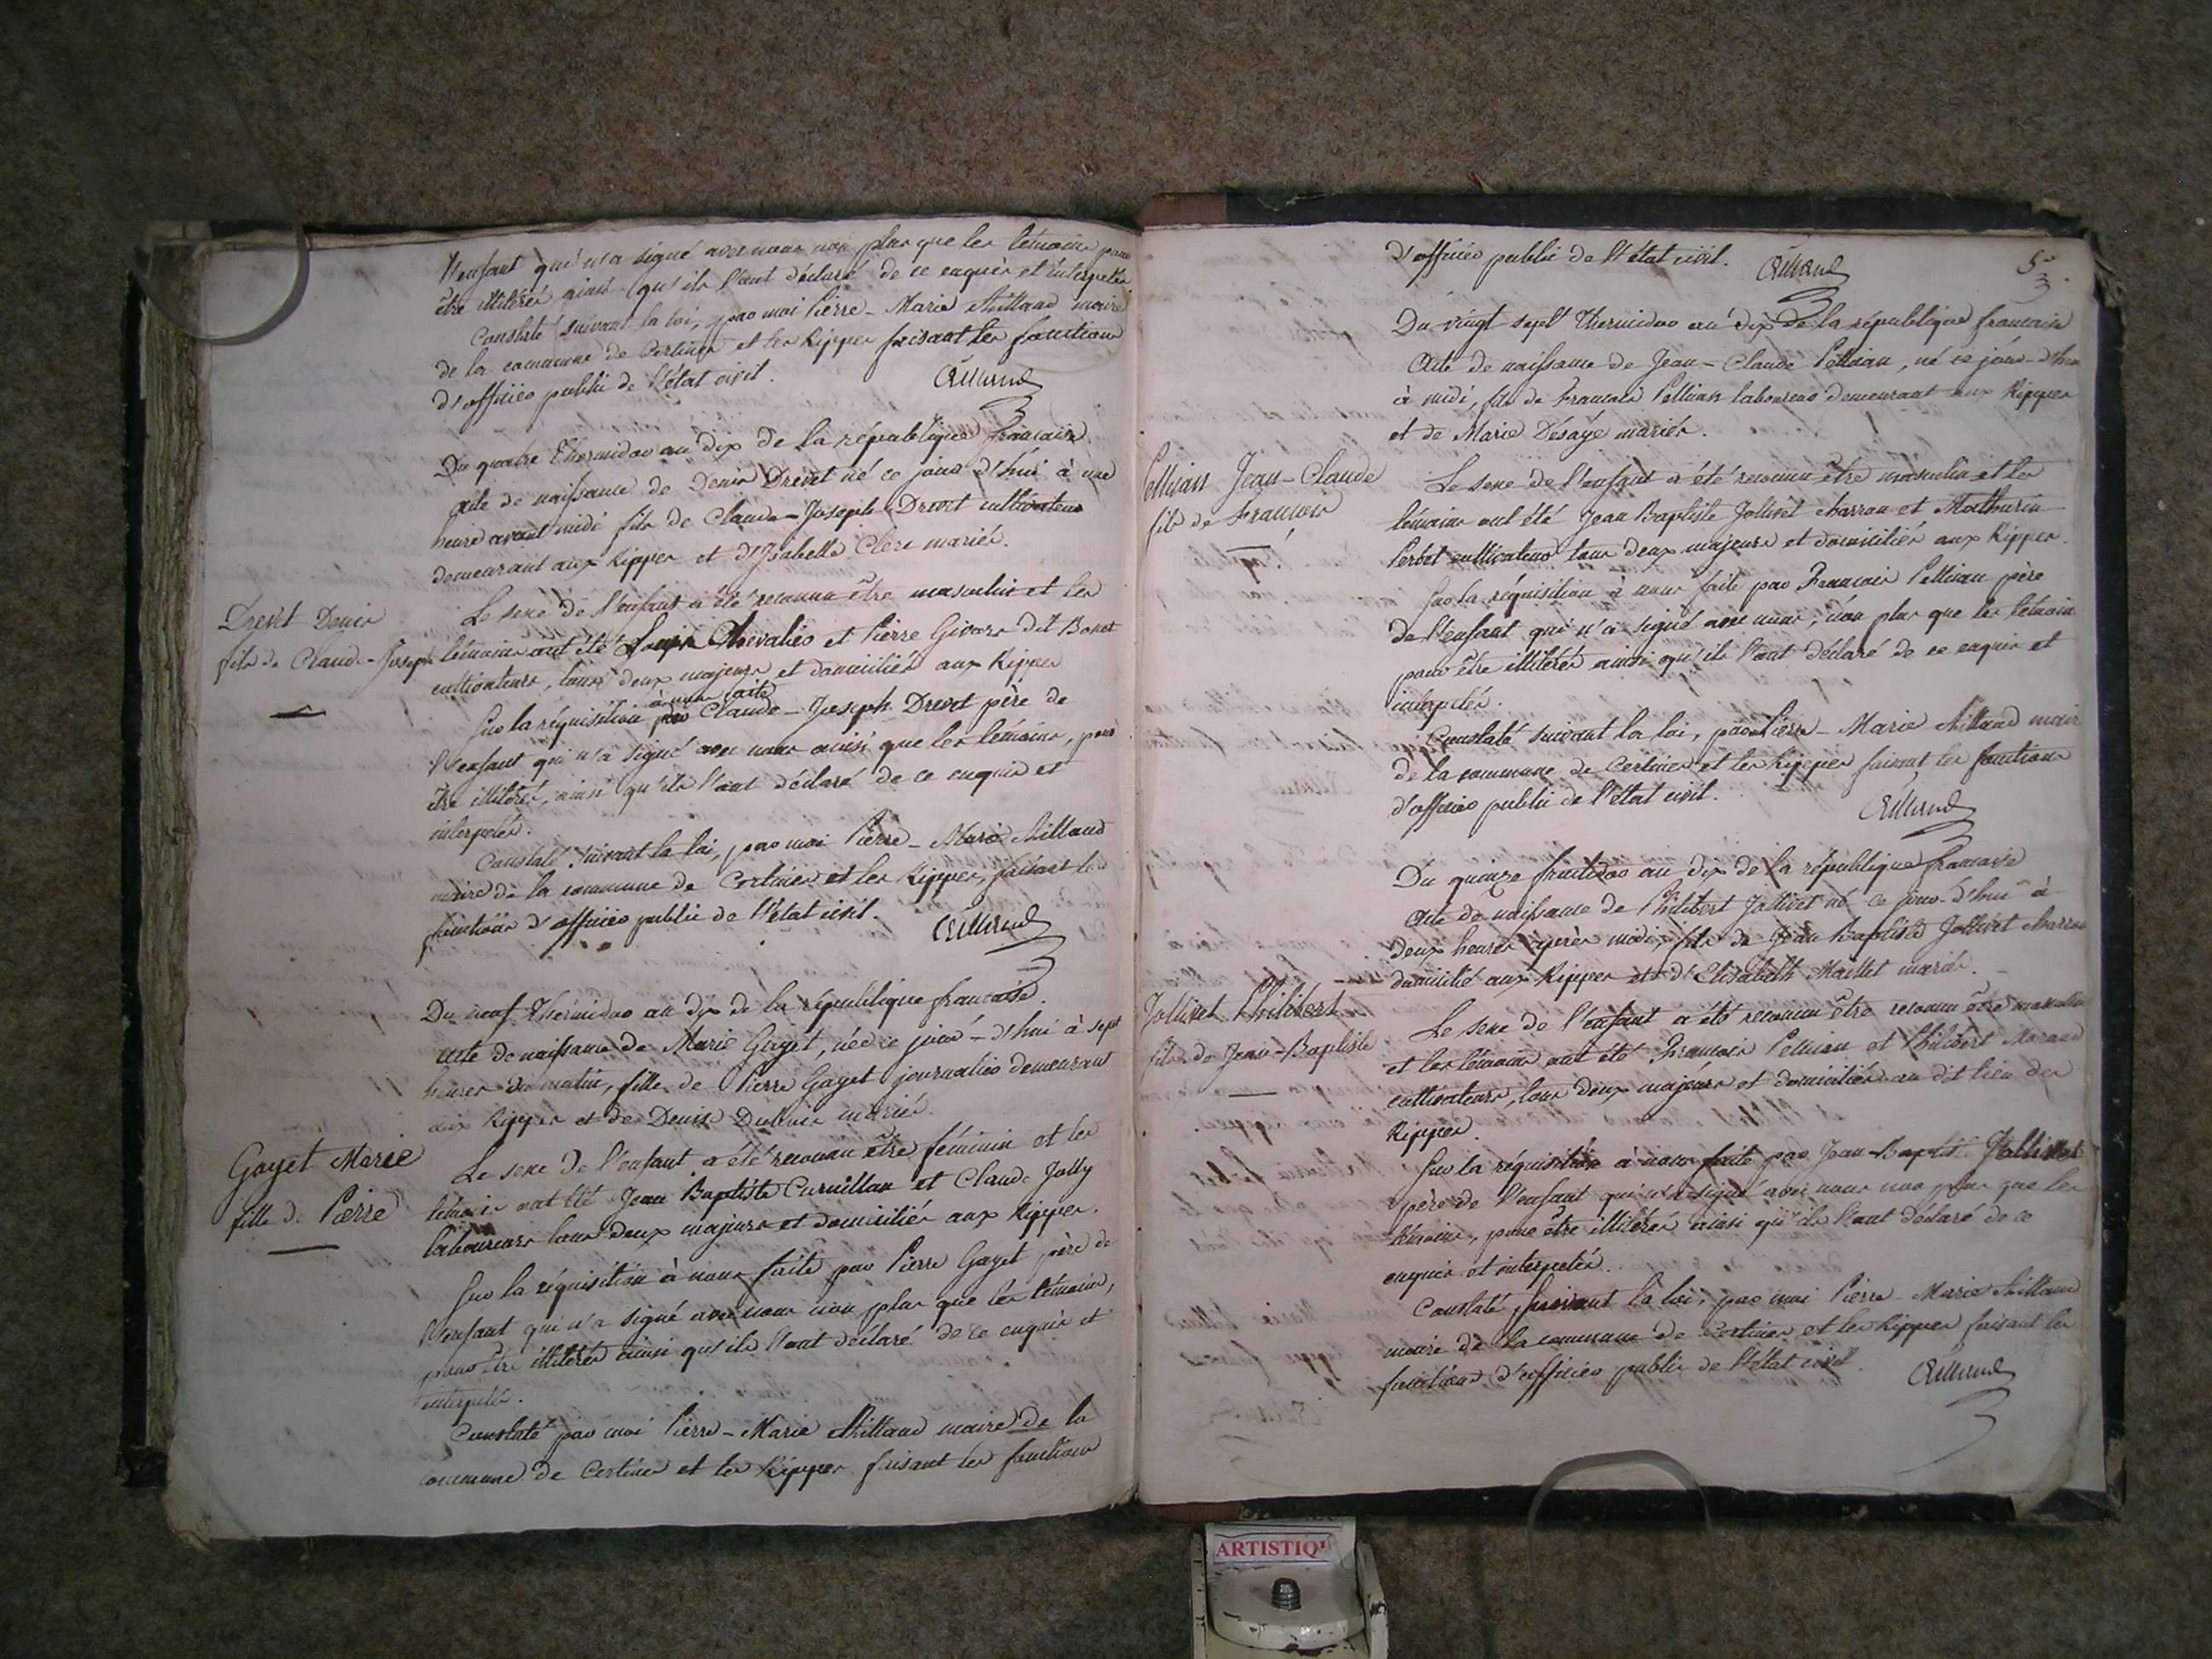 l'enfant qui n'a signé avec nous non plus que les témoins pour
être illitérés ainsi qu'ils l'ont déclaré de ce enquis et interpellés
Constaté suivant la loi, par moi Pierre-Marie Millaud maire
de la commune de Certines et les Rippes faisant les fonctions
d'officier public de l'état civil.
Du quatre Thermidor an dix de la république française
acte de naissance de Denis Drevet né ce jour d'hui à une
heure avant midi fils de Claude-Joseph Drevet cultivateur
demeurant aux Rippes et d'Isabelle Clerc mariés.
Drevet Denis
fils de Claude-Joseph
Le sexe de l'enfant a été reconnu être masculin et les
témoins ont été Chevalier et Pierre dit Bonet
cultivateurs, tous deux majeurs et domiciliés aux Rippes
Sur la réquisition à nous faite par Claude-Joseph Drevet père de
l'enfant qui n'a signé avec nous ainsi que les témoins, pour
être illitérés, ainsi qu'ils l'ont déclaré de ce enquis et
interpelés.
Constaté suivant la loi, par moi Pierre-Marie Millaud
maire de la commune de Certines et les Rippes, faisant les
fonctions d'officier public de l'état civil.
Du neuf Thermidor an dix de la république française.
acte de naissance de Marie Gayet, née ce jour-d'hui à sept
heures du matin, fille de Pierre Gayet journalier demeurant
aux Rippes et de Denise mariés.
Gayet Marie
fille de Pierre
Le sexe de l'enfant a été reconnu être féminin et les
témoins ont été Jean Baptiste et Claude Jolly
laboureurs tous deux majeurs et domiciliés aux Rippes.
Sur la réquisition à nous faite par Pierre Gayet père de
l'enfant qui n'a signé avec nous non plus que les témoins,
pour être illitérés ainsi qu'ils l'ont déclaré de ce enquis et
interpelés.
Constaté par moi Pierre-Marie Millaud maire de la
commune de Certines et les Rippes faisant les fonctions
d'officier public de l'état civil.
Du vingt sept Thermidor an dix de la république française
Acte de naissance de Jean-Claude Pellican, né ce jour-d'hui
à midi, fils de Francois Pellican laboureur demeurant aux Rippes
et de Marie Desaye mariés.
Pellican Jean-Claude
fils de François
Le sexe de l'enfant a été reconnu être masculin et les
témoins ont été Jean Baptiste Jollivet charron et Mathurin
Perbet cultivateur tous deux majeurs et domiciliés aux Rippes.
Sur la réquisition à nous faite par Francois Pellican père
de l'enfant qui n'a signé avec nous, non plus que les témoins
pour être illitérés ainsi qu'ils l'ont déclaré de ce enquis et
interpelés.
Constaté suivant la loi, par Pierre-Marie Millaud maire
de la commune de Certines et les Rippes faisant les fonctions
d'officier public de l'état civil.
Du quinze fructidor an dix de la république francaise
Acte de naissance de Philibert Jollivet né ce jour-d'hui à
deux heures après midi, fils de Jean Baptiste Jollivet charron
domicilié aux Rippes et d'Elisabeth Maillet mariés.
Jollivet Philibert
fils de Jean-Baptiste
Le sexe de l'enfant a été reconnu être reconnu être masculin
et les témoins ont été Francois Pellican et Philibert Morand
cultivateurs, tous deux majeurs et domiciliés au dit lieu des
Rippes.
Sur la réquisition à nous faite par Jean-Baptiste Jollivet
père de l'enfant qui n'a signé avec nous non plus que les
témoins, pour être illitérés ainsi qu'ils l'ont déclaré de ce
enquis et interpelés.
Constaté suivant la loi, par moi Pierre-Marie Millaud
maire de la commune de Certines et les Rippes faisant les
fonctions d'officier public de l'état civil.
ARTISTIQ